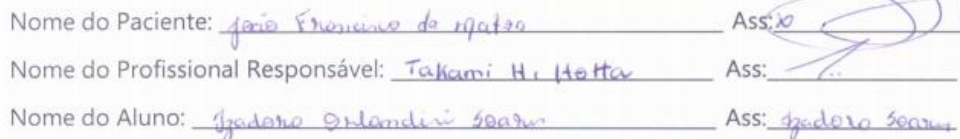 Nome do Paciente: João Francisco de Matos Ass:
Nome do Profissional Responsável: Takami H. Hotta Ass:
Nome do Aluno: Izadora Orlandini Soares Ass: Izadora Soares